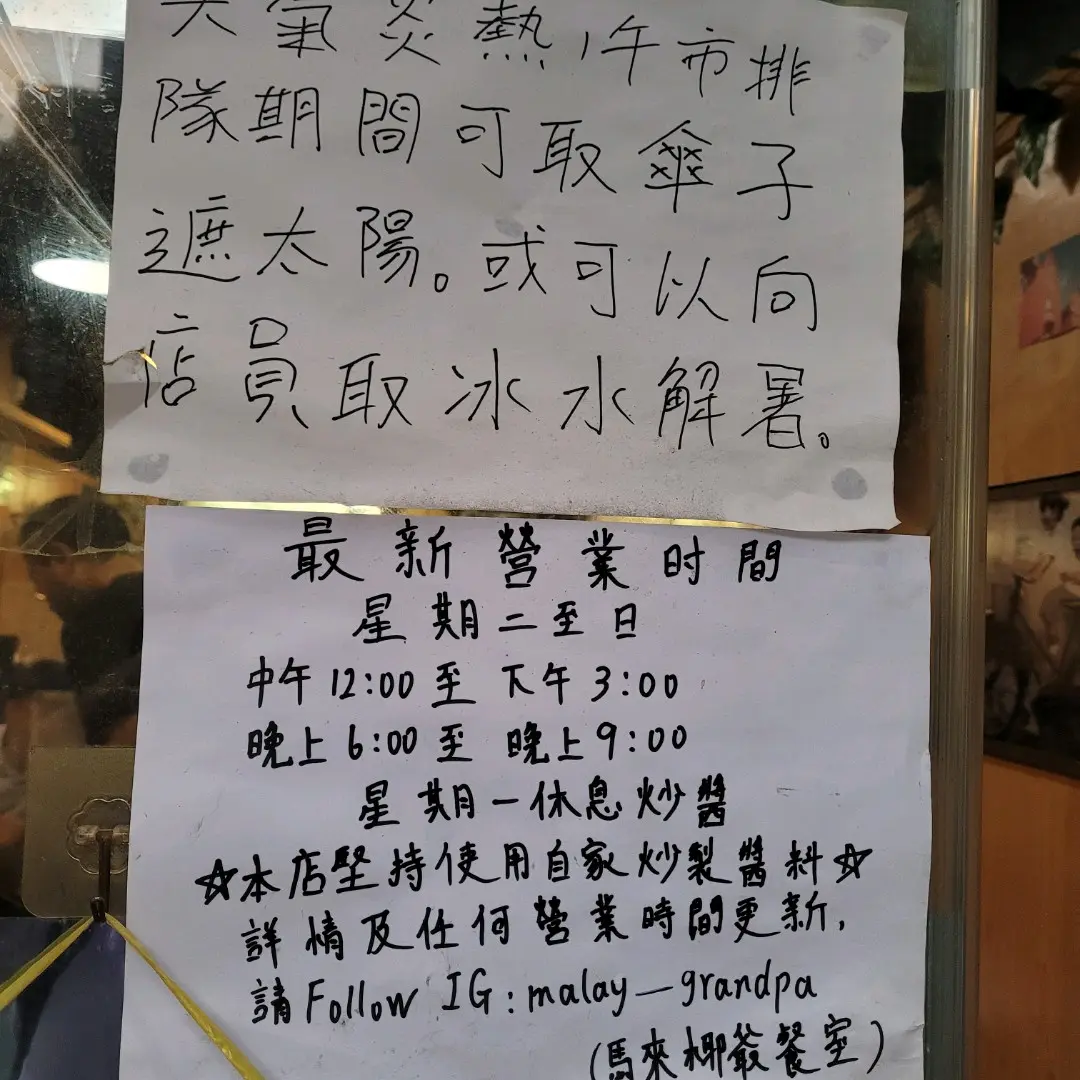 天氣炎熱,午市排
隊期間可取傘子
遮太陽。或可以向
店員取冰水解署。
最新營業时間
星期二至日
中午12:00至下午3:00
晚上6:00至晚上9:00
星期一休息炒醬
☆本店堅持使用自家炒製醬料☆
詳情及任何營業時間更新,
請Follow IG:malay_grandpa
(馬來椰爺餐室)